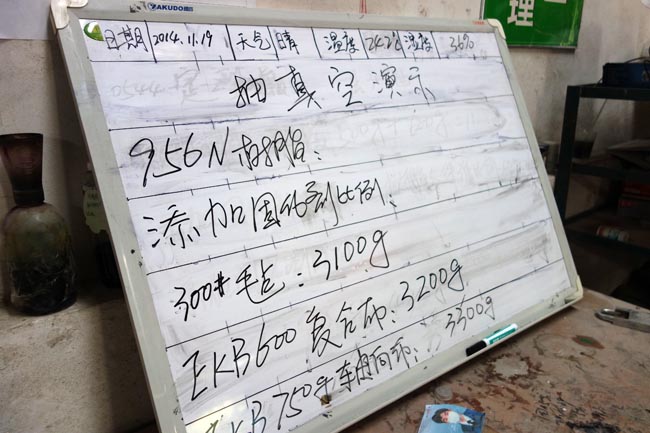 YAKUDO
理
日期 2014.11.19 天气 晴 温度 24.2℃ 湿度 36%
抽真空演示
956N 树脂:
添加固化剂比例:
300# 毡: 3100g
EKB600 复合布: 3200g
EKB 750g 轴向布: 3300g